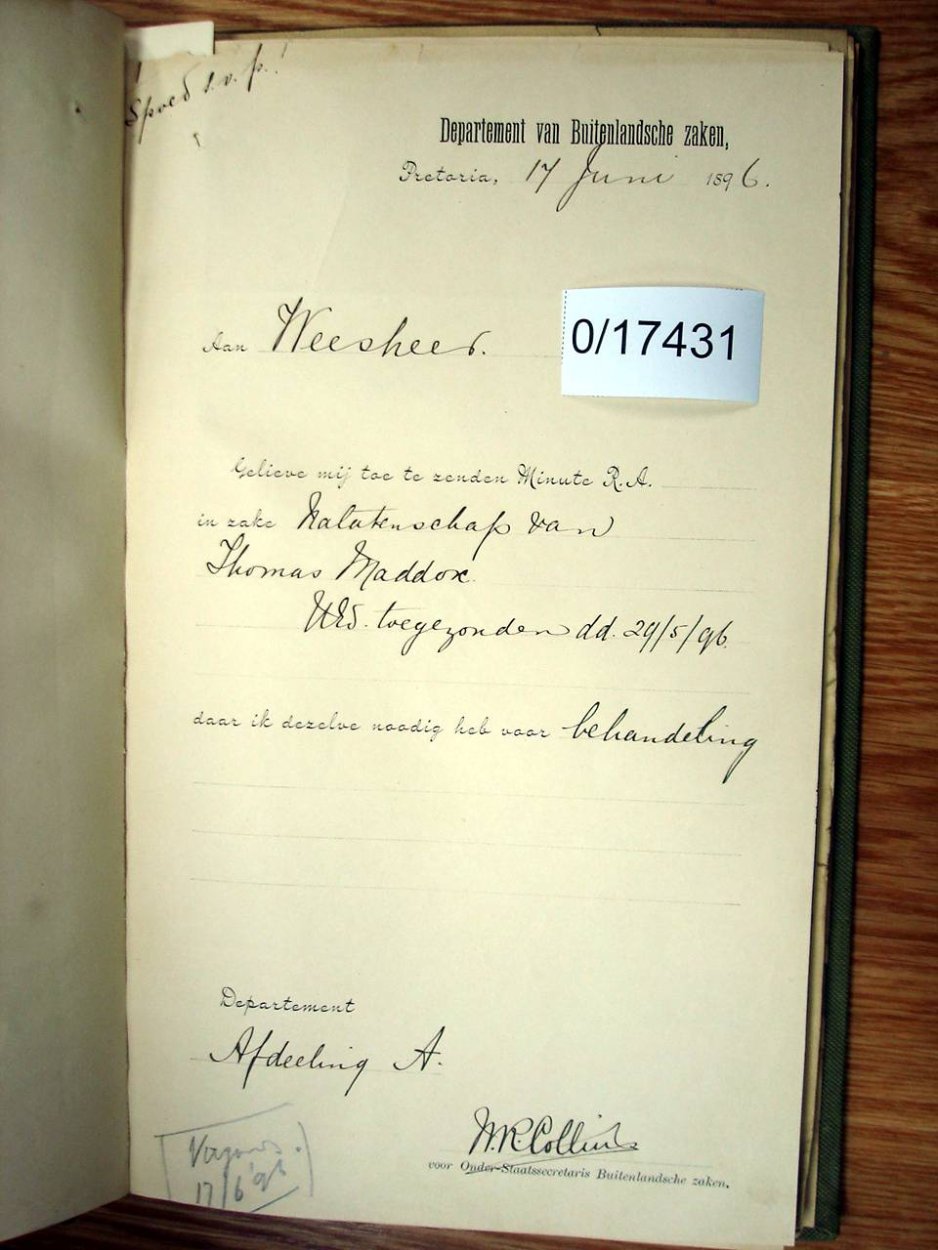 Spoed s.v.p.!
Departement van Buitenlandsche zaken,
Pretoria, 17 Juni 1896.
Aan Weesheer.
0/17431
Gelieve mij toe te zenden Minute R.A.
in zake Nalatenschap van
Thomas Maddox
UEd. toegezonden dd. 29/5/96
daar ik dezelve noodig heb voor behandeling
Departement
Afdeeling A.
voor Onder-Staatssecretaris Buitenlandsche zaken.
17/6 96